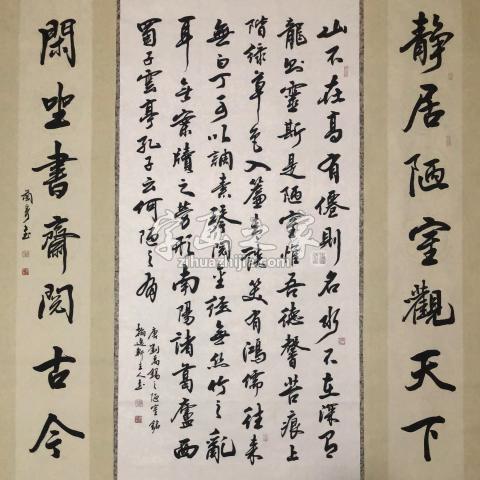 靜居陋室觀天下
山不在高有僊則名水不在深有
龍則靈斯是陋室惟吾德馨苔痕上
階綠草色入簾青談笑有鴻儒往來
無白丁可以調素琴閱金經無絲竹之亂
耳無案牘之勞形南陽諸葛廬西
蜀子雲亭孔子云何陋之有
唐劉禹錫之陋室銘
閑坐書齋閱古今
字画之家
zihuazhijia.com